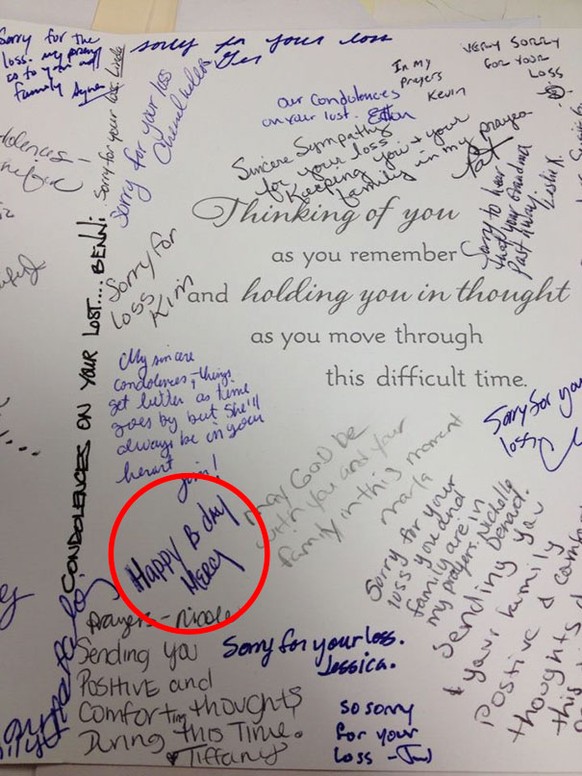 Sorry for the
loss. my prayers
go to you and
family
sorry for your loss
Sorry for your loss, Linda
Sorry for your loss
In my
prayers
Kevin
VERY SORRY
FOR YOUR
LOSS
our condolences
on your lost.
Sincere Sympathy
for your loss
Keeping you & your
family in my prayers
Pat
Sorry to hear
that your Grandma
Past Away
Leslie K.
Thinking of you
as you remember
and holding you in thought
as you move through
this difficult time.
Sorry for
loss
Kim
CONDOLENCES ON YOUR LOST.... BENNI
My sincere
condolences, things
get better as time
goes by but she'll
always be in your
heart
Jim!
Sorry for your
loss
May God be
with you and your
family in this moment
Marla
Happy B day
Mercy
Sorry for your
loss you and
family are in
my prayers. Nichelle
Sending you
& your family
positive &
thoughts
this
Prayers - Nicole
Sending you
Positive and
Comforting thoughts
During this Time.
♥Tiffany
Sorry for your loss.
Jessica.
so sorry
for your
loss